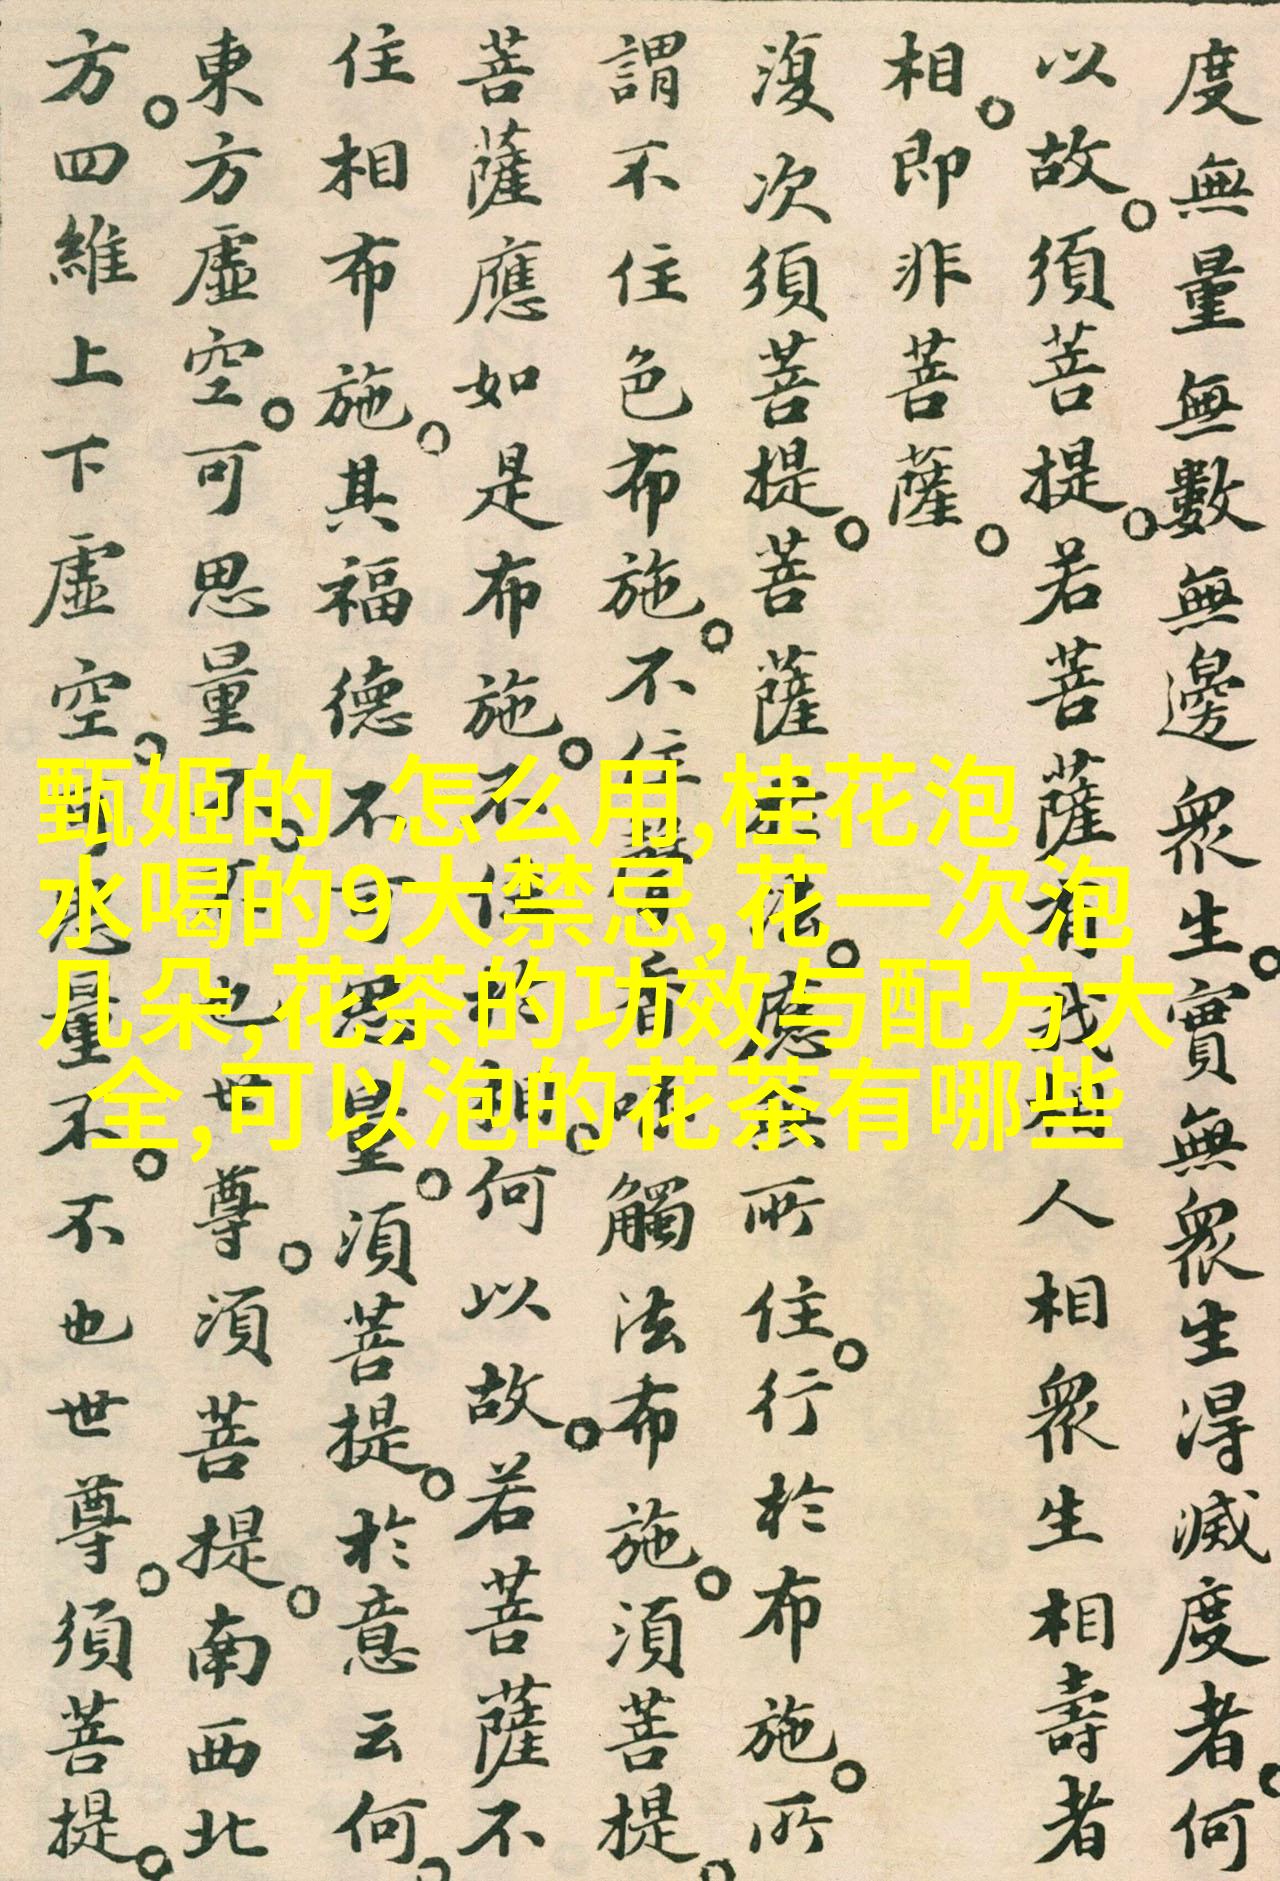 度無量無數無邊眾生。實無眾生得滅度者。何
以故。須菩提。若菩薩有我相人相眾生相壽者
相。即非菩薩。
復次須菩提。菩薩於法。應無所住。行於布施。所
謂不住色布施。不住聲香味觸法布施。須菩提。
菩薩應如是布施。不住於相。何以故。若菩薩不
住相布施。其福德不可思量。須菩提。於意云何。
東方虛空。可思量不。不也世尊。須菩提。南西北
方。四維上下虛空。可思量不。不也世尊。須菩提。
甄姬的 怎么用,桂花泡
水喝的9大禁忌,花一次泡
几朵,花茶的功效与配方大
全,可以泡的花茶有哪些